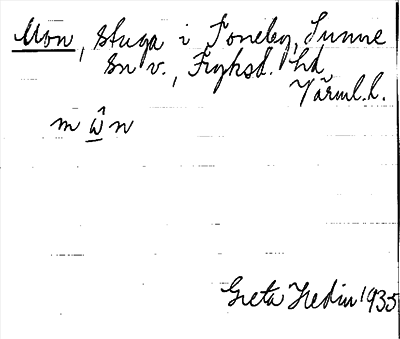 Mon, stuga i Toneby, Sunne
sn v., Fryksd. hd
Värml. l.
m ŵ n
Greta Hedin 1935